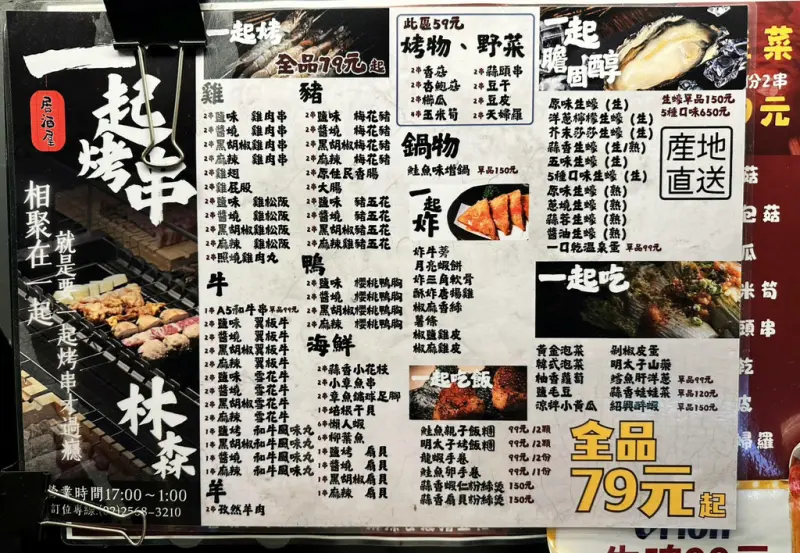 一起烤串
居酒屋
相聚在一起
就是要一起烤串才過癮
林森
營業時間17:00~1:00
訂位專線:(02)2568-3210
一起烤
全品79元起
雞
2串鹽味 雞肉串
2串醬燒 雞肉串
2串黑胡椒雞肉串
2串麻辣 雞肉串
2串雞翅
2串雞屁股
2串鹽味 雞松阪
2串醬燒 雞松阪
2串黑胡椒雞松阪
2串麻辣 雞松阪
2串照燒雞肉丸
牛
1串A5和牛串 單品99元
2串鹽味 翼板牛
2串醬燒 翼板牛
2串黑胡椒翼板牛
2串麻辣 翼板牛
2串鹽味 雪花牛
2串醬燒 雪花牛
2串黑胡椒雪花牛
2串麻辣 雪花牛
1串鹽燒 和牛風味丸
1串醬燒 和牛風味丸
1串黑胡椒和牛風味丸
1串麻辣 和牛風味丸
羊
2串孜然羊肉
豬
2串鹽味 梅花豬
2串醬燒 梅花豬
2串黑胡椒梅花豬
2串麻辣 梅花豬
2串原住民香腸
2串大腸
2串鹽味 豬五花
2串醬燒 豬五花
2串黑胡椒豬五花
2串麻辣雞豬五花
鴨
2串鹽味 櫻桃鴨胸
2串醬燒 櫻桃鴨胸
2串黑胡椒 櫻桃鴨胸
2串麻辣 櫻桃鴨胸
海鮮
2串蒜香小花枝
2串小章魚串
2串章魚鏘球足腳
1串培根干貝
6串懶人蝦
6串柳葉魚
1串鹽烤 扇貝
1串醬燒 扇貝
1串黑胡椒扇貝
1串麻辣 扇貝
此區59元
烤物、野菜
2串香菇
2串杏鮑菇
2串櫛瓜
4串玉米筍
2串蒜頭串
2串豆干
2串豆皮
2串天婦羅
鍋物
鮭魚味增鍋 單品150元
一起炸
炸牛蒡
月亮蝦餅
炸三角軟骨
酥炸唐揚雞
椒麻香絲
薯條
椒鹽雞皮
椒麻雞皮
一起吃飯
鮭魚親子飯糰 99元/2顆
明太子烤飯糰 99元/2顆
龍蝦手卷 99元/2份
鮭魚卵手卷 99元/1份
蒜香蝦仁粉絲煲 150元
蒜香扇貝粉絲煲 150元
一起膽固醇
生蠔單品150元
5種口味650元
原味生蠔 (生)
洋蔥檸檬生蠔 (生)
芥末莎莎生蠔 (生)
蒜香生蠔 (生/熟)
五味生蠔 (生)
5種口味生蠔 (生)
原味生蠔 (熟)
蔥燒生蠔 (熟)
蒜蓉生蠔 (熟)
醬油生蠔 (熟)
一口乾溫泉蛋 單品99元
產地
直送
一起吃
黃金泡菜
韓式泡菜
柚香蘿蔔
鹽毛豆
涼拌小黃瓜
剁椒皮蛋
明太子山藥
鱈魚肝洋蔥 單品99元
蒜香娃娃菜 單品120元
紹興醉蝦 單品150元
全品
79元起
菜
份2串
元
菇
包 菇
瓜
米 筍
頭 串
乾
皮
婦羅
Orion